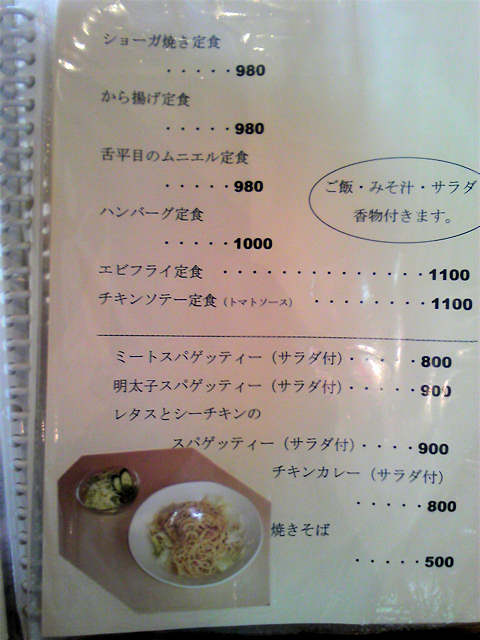 ショーガ焼き定食
・・・・・980
から揚げ定食
・・・・・980
舌平目のムニエル定食
・・・・・980
ハンバーグ定食
・・・・・1000
ご飯・みそ汁・サラダ
香物付きます。
エビフライ定食 ・・・・・・・・・・・・・・・1100
チキンソテー定食（トマトソース） ・・・・・・・・1100
ミートスパゲッティー（サラダ付）・・・・・800
明太子スパゲッティー（サラダ付）・・・・・900
レタスとシーチキンの
スパゲッティー（サラダ付）・・・・900
チキンカレー（サラダ付）
・・・・・800
焼きそば
・・・・・500